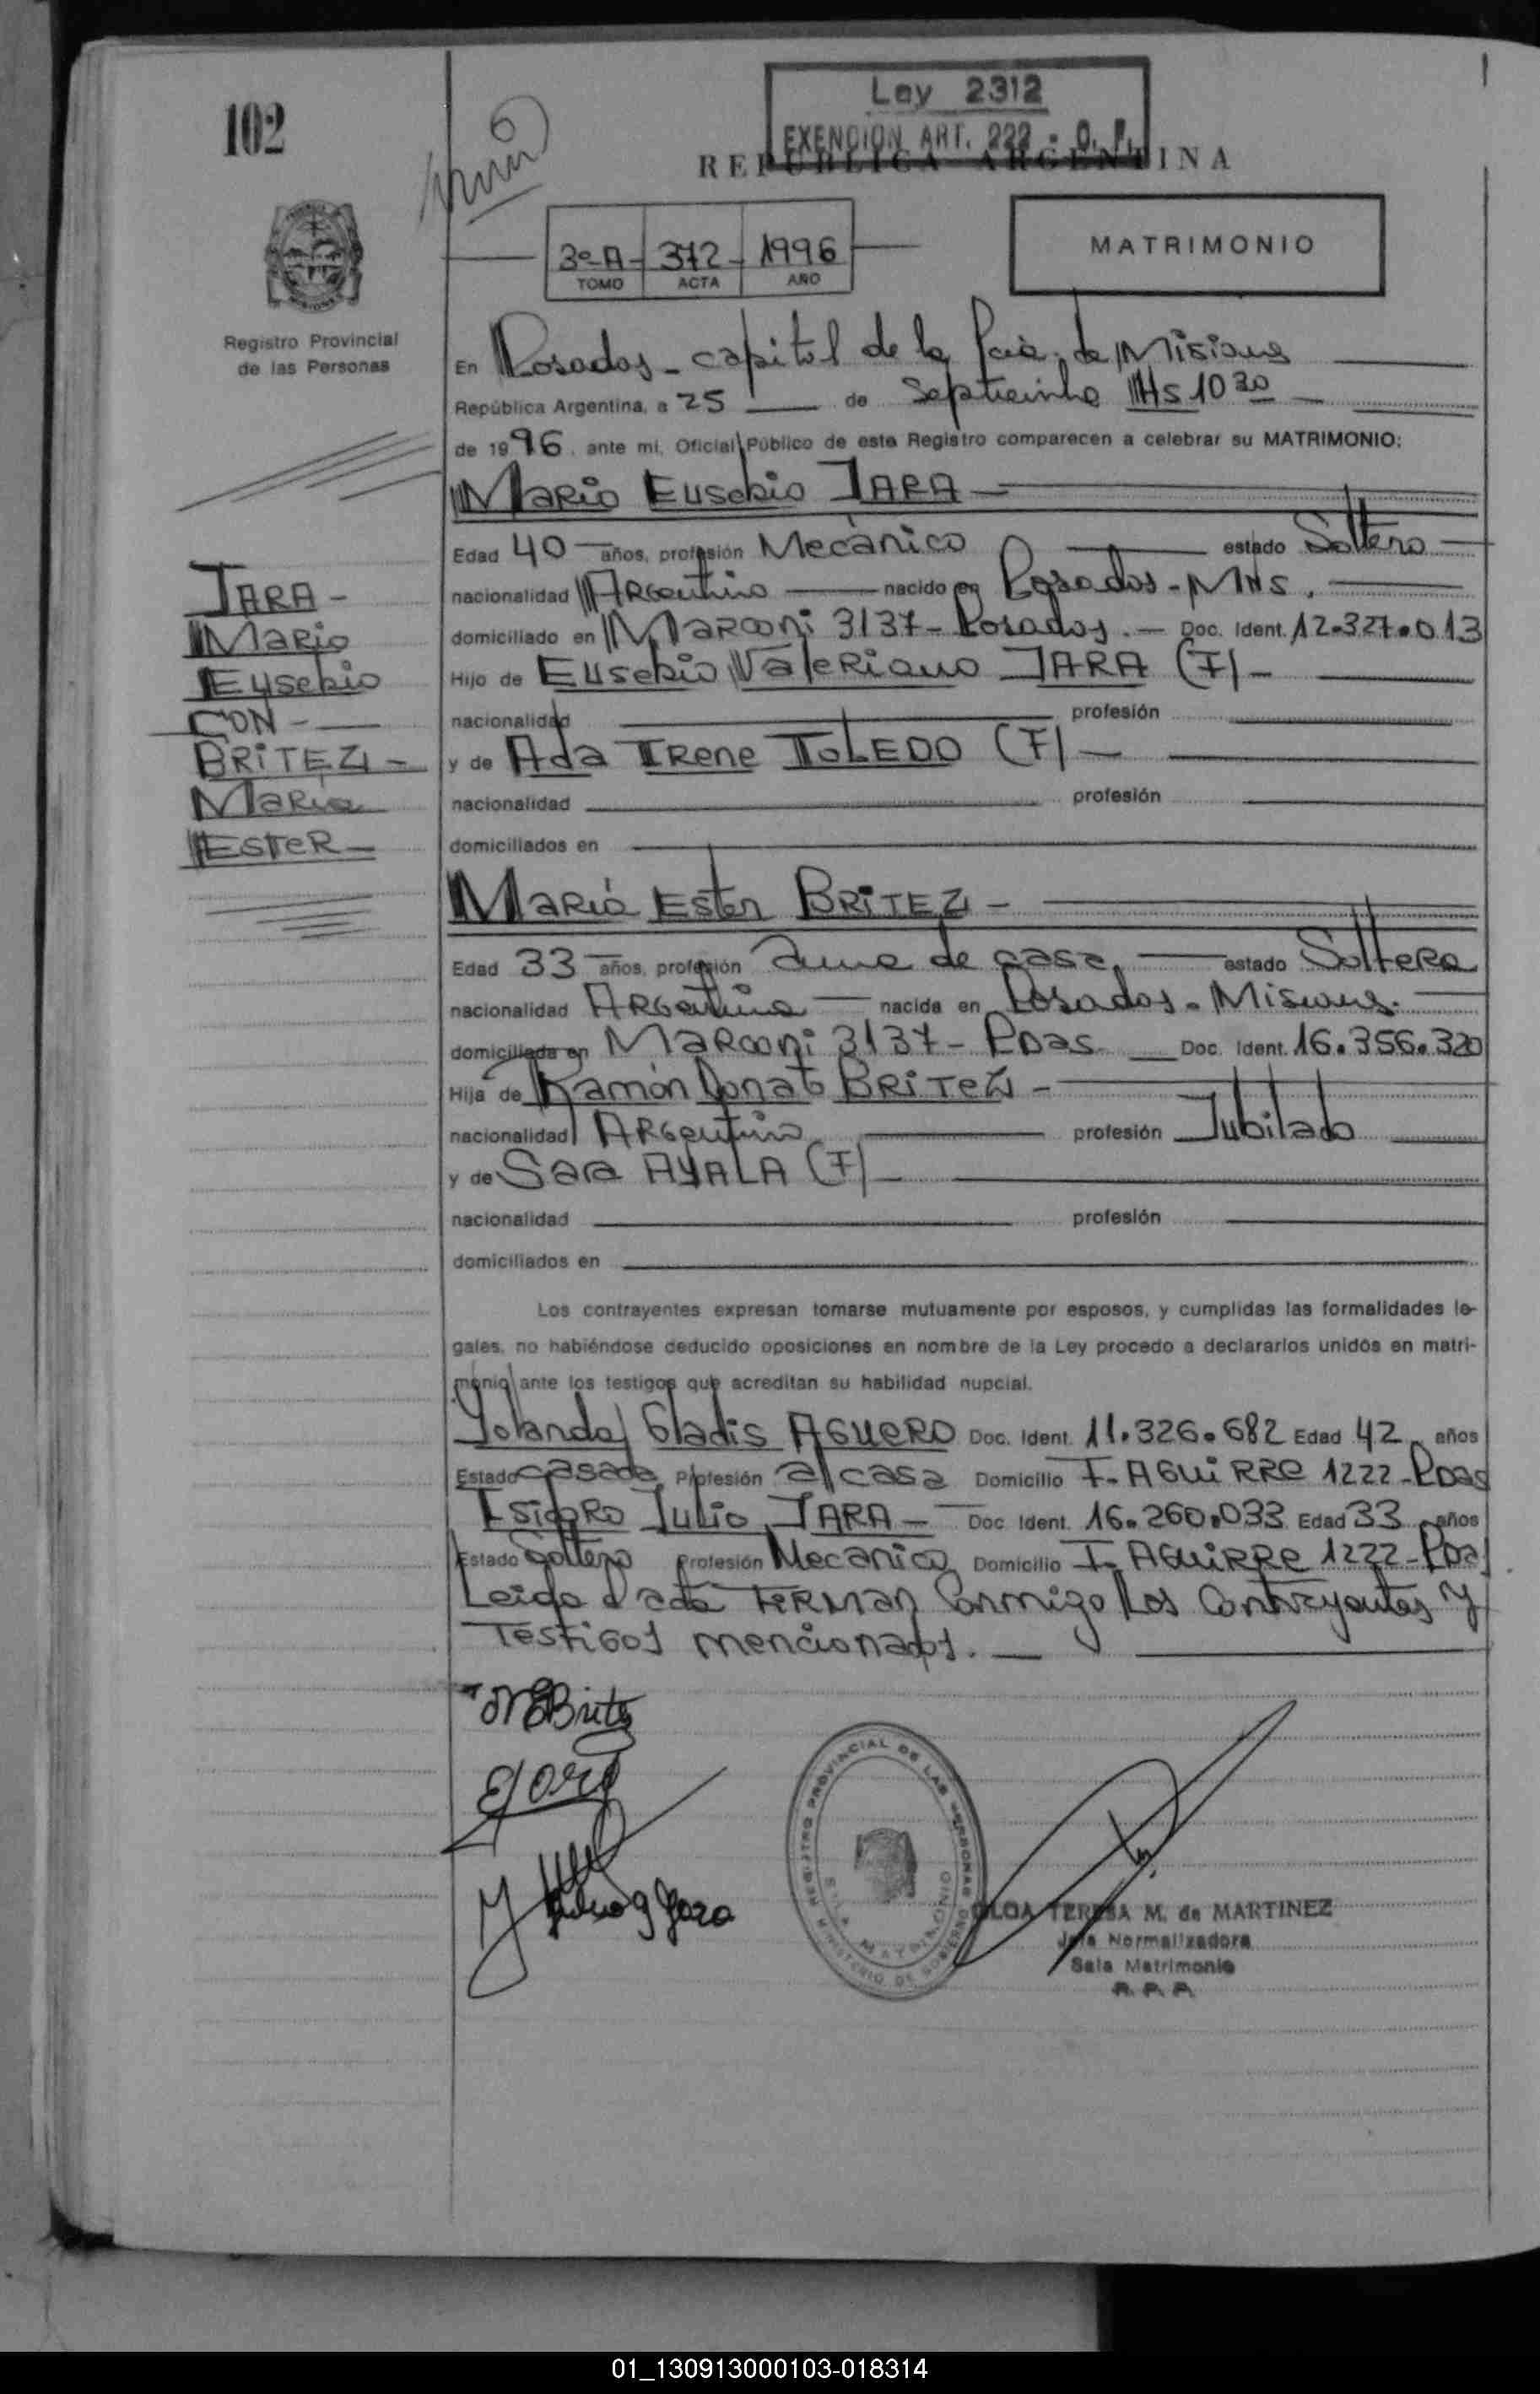 102
Ley 2312
EXENCION ART. 222 - C. F.
REPUBLICA ARGENTINA
3º-A- 372- 1996
TOMO ACTA AÑO
MATRIMONIO
Registro Provincial
de las Personas
En Posadas - capital de la Pcia. de Misiones
República Argentina, a 25 de Septiembre Hs 10 30
de 1996, ante mi, Oficial Público de este Registro comparecen a celebrar su MATRIMONIO:
Mario Eusebio JARA
Edad 40 años, profesión Mecánico estado Soltero
nacionalidad Argentino nacido en Posadas - Mns.
domiciliado en Marconi 3137 - Posadas. - Doc. Ident. 12.327.013
Hijo de Eusebio Valeriano JARA (F) -
nacionalidad profesión
y de Ada Irene TOLEDO (F) -
nacionalidad profesión
domiciliados en
JARA -
Mario
Eusebio
CON -
BRITEZ -
Maria
Ester -
María Ester BRITEZ -
Edad 33 años, profesión ama de casa estado Soltera
nacionalidad Argentina nacida en Posadas - Misiones.
domiciliada en Marconi 3137 - Pdas Doc. Ident. 16.356.320
Hija de Ramón Donato BRITEZ -
nacionalidad Argentino profesión Jubilado
y de Sara AYALA (F)
nacionalidad profesión
domiciliados en
Los contrayentes expresan tomarse mutuamente por esposos, y cumplidas las formalidades le-
gales, no habiéndose deducido oposiciones en nombre de la Ley procedo a declararlos unidos en matri-
monio ante los testigos que acreditan su habilidad nupcial.
Yolanda Gladis AGUERO Doc. Ident. 11.326.682 Edad 42 años
Estado casada Profesión a/casa Domicilio F. AGUIRRE 1222 - Pdas
Isidro Julio JARA - Doc. Ident. 16.260.033 Edad 33 años
Estado Soltero Profesión Mecanico Domicilio F. AGUIRRE 1222 - Pdas
Leida el acta Firman Conmigo Los Contrayentes y
Testigos mencionados.
REGISTRO PROVINCIAL DE LAS PERSONAS
MINISTERIO DE GOBIERNO
SALA MATRIMONIO
OLGA TERESA M. de MARTINEZ
Jefa Normalizadora
Sala Matrimonio
R. P. P.
01_130913000103-018314